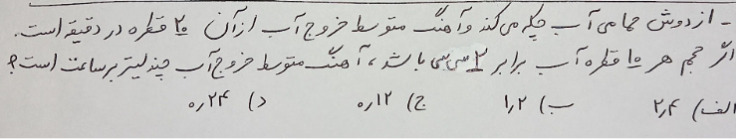 - از دوش حمامی آب چکه می‌کند و آهنگ متوسط خروج آب از آن ۲۰ قطره در دقیقه است.
اگر حجم هر ۱۰ قطره آب برابر ۲ سی‌سی باشد، آهنگ متوسط خروج آب چند لیتر بر ساعت است؟
الف) ۲٫۴ ب) ۱٫۲ ج) ۰٫۱۲ د) ۰٫۲۴